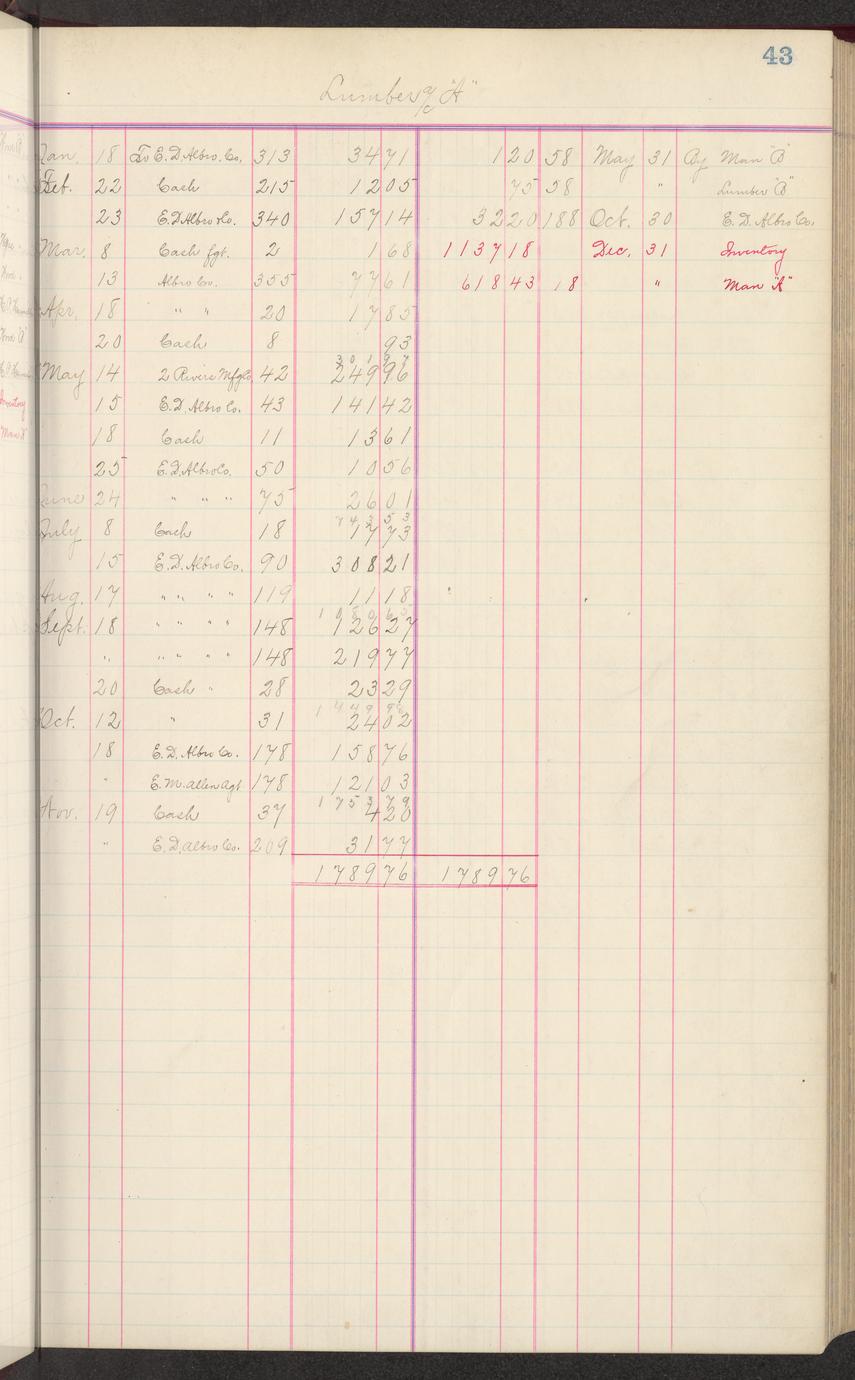 43
Lumber a/c "A"
Jan. 18 To E. D. Albro. Co. 313 34 71 1 20 58 May 31 By Man "B"
Feb. 22 Cash 215 12 05 75 58 " Lumber "B"
23 E. D. Albro & Co. 340 157 14 32 20 188 Oct. 30 E. D. Albro Co.
Mar. 8 Cash fgt. 2 1 68 1137 18 Dec. 31 Inventory
13 Albro Co. 355 77 61 618 43 18 " Man "A"
Apr. 18 " " 20 17 85
20 Cash 8 93
301 97
May 14 2 Rivers Mfg Co 42 249 96
15 E. D. Albro Co. 43 141 42
18 Cash 11 13 61
25 E. D. Albro Co. 50 10 56
June 24 " " " 75 26 01
743 53
July 8 Cash 18 17 73
15 E. D. Albro Co. 90 308 21
Aug. 17 " " " " 119 11 18
1080 65
Sept. 18 " " " " 148 126 27
" " " " " 148 219 77
20 Cash " 28 23 29
1449 98
Oct. 12 " 31 24 02
18 E. D. Albro Co. 178 158 76
" E. M. Allen Agt 178 121 03
1753 79
Nov. 19 Cash 37 4 20
" E. D. Albro Co. 209 31 77
1789 76 1789 76
Inventory
Man "A"